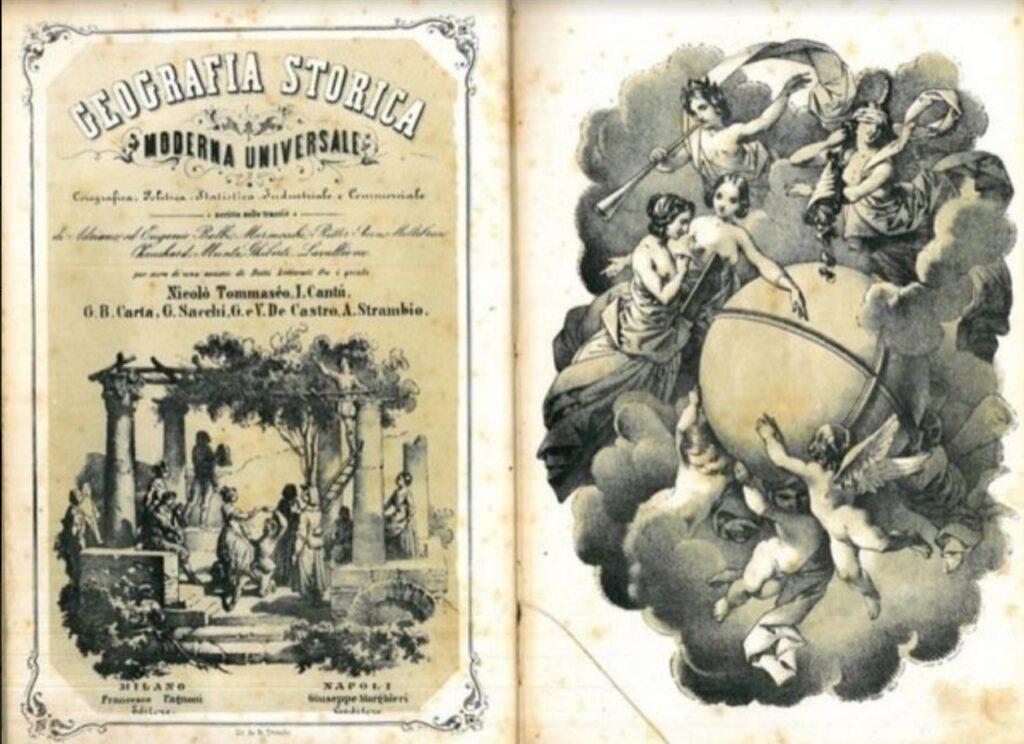 GEOGRAFIA STORICA
MODERNA UNIVERSALE
Corografica, Politica, Statistica, Industriale e Commerciale
scritta sulle traccie
di Adriano ed Eugenio Balbi, Marmocchi, Ritter,
per cura di una società di Dotti Letterati fra i quali
Nicolò Tommaséo, I. Cantù,
G. B. Carta, G. Sacchi, G. e V. De Castro, A. Strambio.
MILANO
Francesco Pagnoni
Editore
NAPOLI
Giuseppe Marghieri